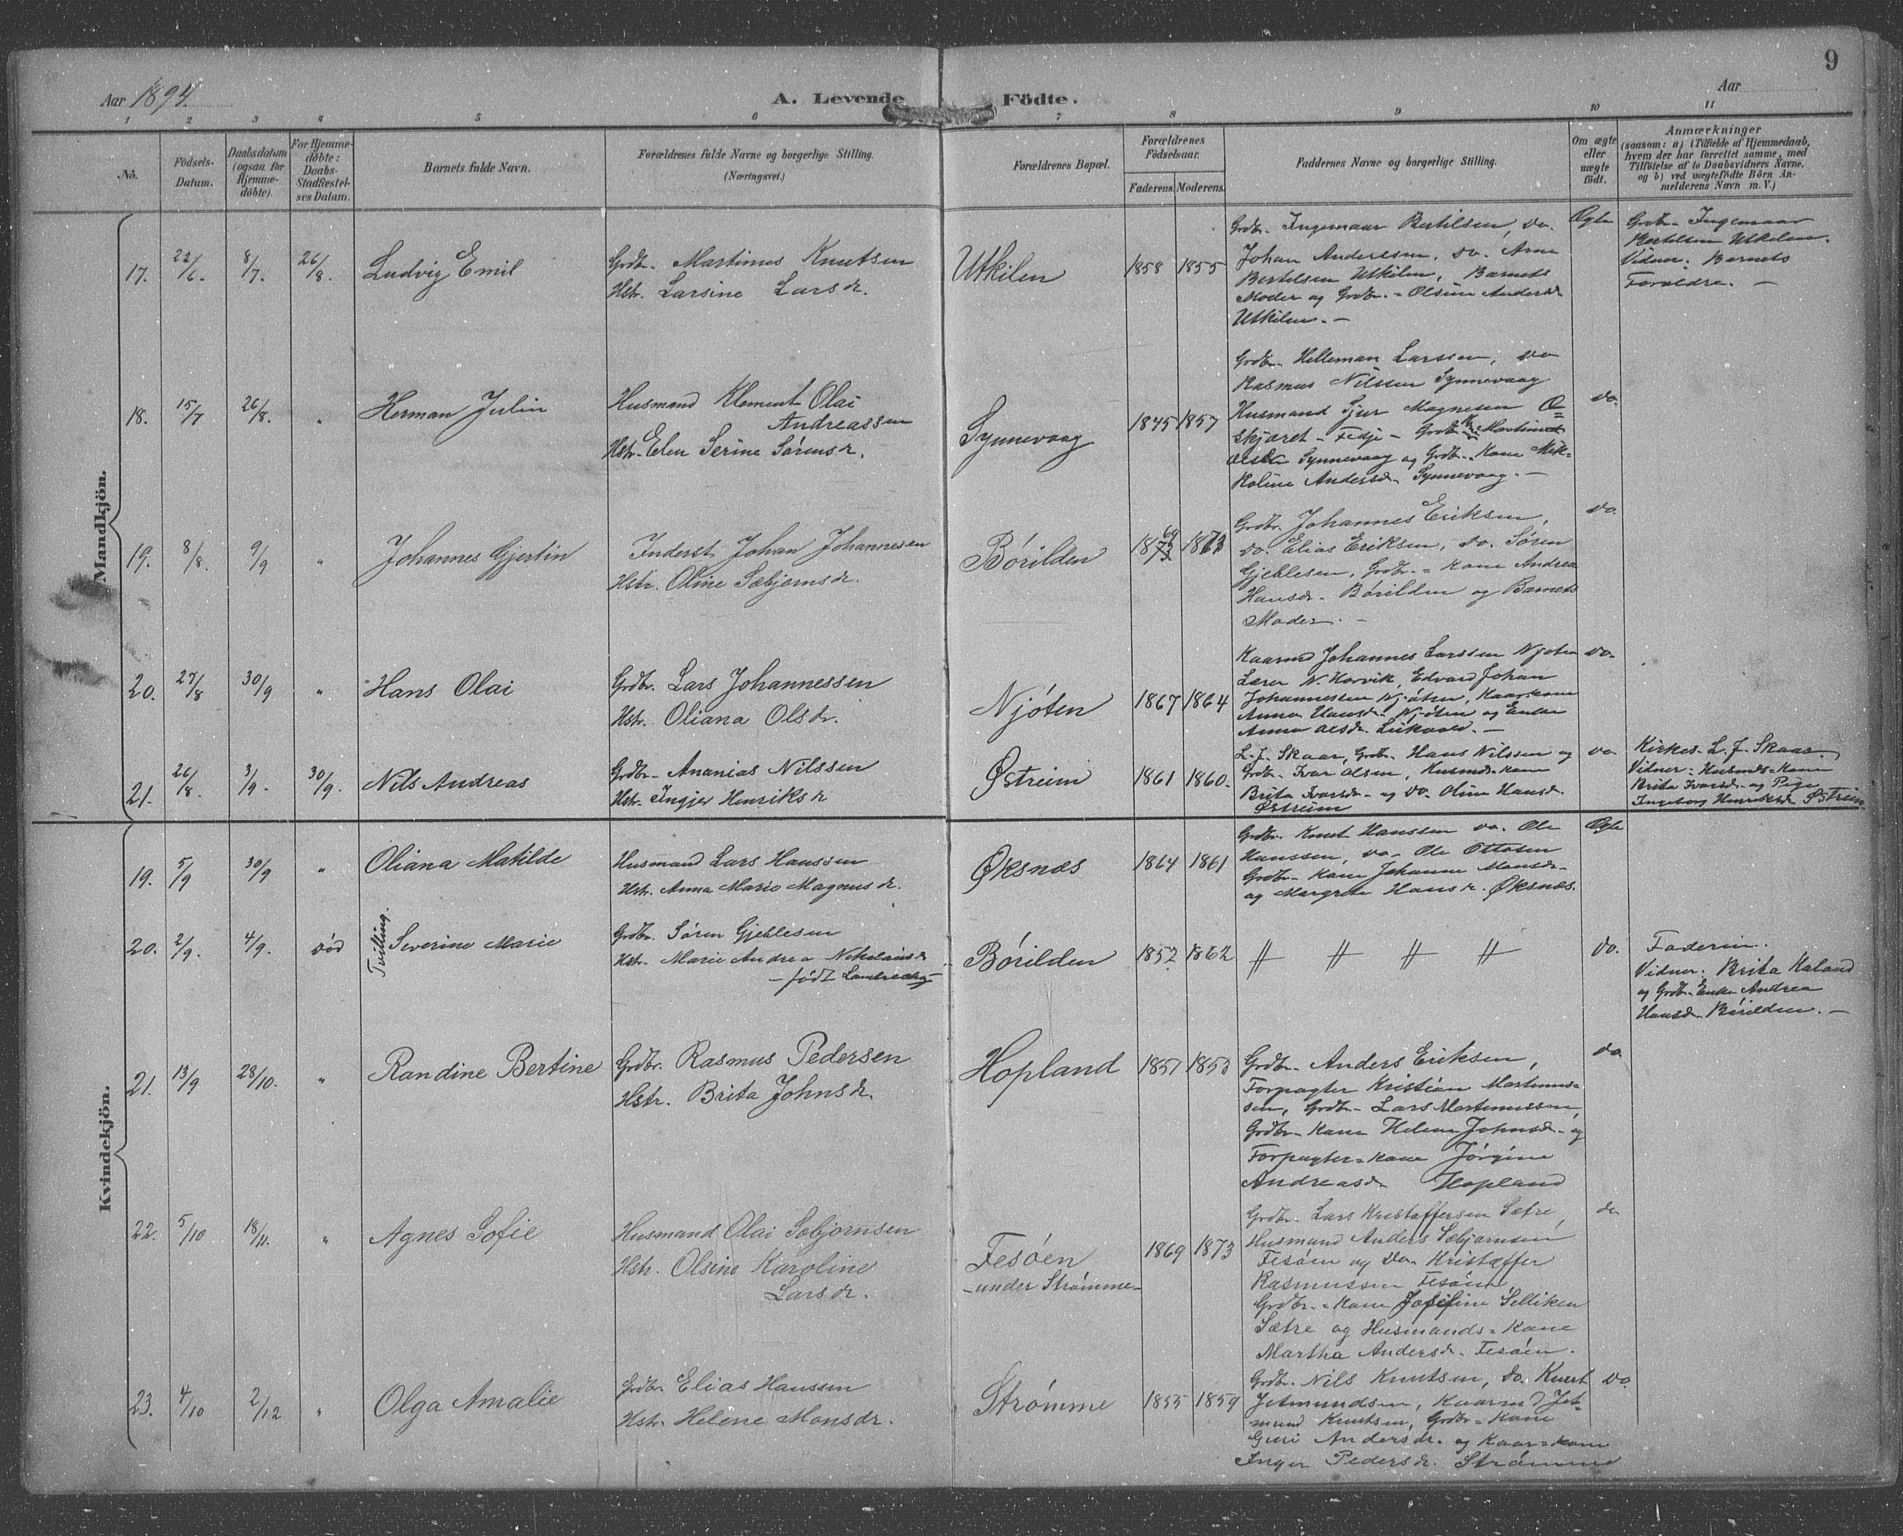 9
Aar 1894.
A. Levende Födte.
Aar
1 2 3 4 5 6 7 8 9 10 11
No.
Födsels-Datum.
Daabsdatum (ogsaa för Hjemmedöbte).
For Hjemmedöbte: Daabs-Stadfæstelses Datum.
Barnets fulde Navn.
Forældrenes fulde Navne og borgerlige Stilling.
(Næringsvei.)
Forældrenes Bopæl.
Forældrenes Födselsaar.
Faderens. Moderens.
Faddernes Navne og borgerlige Stilling.
Om ægte eller uægte födt.
Anmærkninger
(saasom: a) i Tilfælde af Hjemmedaab,
hvem der har forrettet samme, med
Tilföielse af to Daabsvidners Navne.
og b) ved uægtefödte Börn An-
melderens Navn m. V.)
Mandkjön.
17. 22/6 8/7. 26/8. Ludvig Emil
Grdbr. Martinus Knutsen
Hstr. Larsine Larsdr.
Utkilen 1858 1855
Grdbr. Ingemaar Bertilsen, do.
Johan Andersen, do. Arne
Bertilsen Utkilen, Barnets
Moder og Grdbr.- Olsine Andersdr
Utkilen. –
Ægte
Grdbr. Ingemaar
Bertilsen Utkilen.
Vidner: Barnets
Forældre. –
18. 15/7 26/8. " Herman Julin
Husmand Klement Olai
Andreassen
Hstr. Elen Serine Sørensdr.
Synnevaag 1845 1857
Grdbr. Helleman Larssen, do
Rasmus Nilssen Synnevaag
Husmand Sjur Magnesen
skjæret – Fedje – Grdbr. Martinus
Olsen Synnevaag og Grdbr. Kone Mik-
koline Andersdr. Synnevaag. –
do.
19. 8/8. 9/9 " Johannes Gjertin
Inderst Johan Johannesen
Hstr. Oline Sæbjørnsdr.
Børilden
Grdbr. Johannes Eriksen,
do. Elias Eriksen, do. Søren
Gjeblesen, Grdbr.= Kone Andrea
Hansdr. Børilden og Barnets
Moder. –
do.
20. 27/8 30/9 " Hans Olai
Grdbr. Lars Johannessen
Hstr. Oliana Olsdr.
Njøten 1867 1864
Kaarmd Johannes Larssen Njøten
Lærer N. Horvik, Edvard Johan
Johannessen Njøten, Kaarkone
Anna Hansdr. Njøten og Enke
Anna Olsdr.
do.
21. 26/8 3/9. 30/9. Nils Andreas
Grdbr. Ananias Nilssen
Hstr. Ingjer Henriksdr
Østreim 1861 1860.
L. J. Skaar, Grdbr. Hans Nilssen og
Grdbr. Ivar Olsen, Husmds.kone
Brita Ivarsdr. og do. Oline Hansdr.
Østreim
do
Kirkes. L. J. Skaar.
Vidner: Husmds.Kone
Brita Ivarsdr. og Pige
Ingeborg Henriksdr Østreim
Kvindekjön.
19. 5/9 30/9 " Oliana Matilde
Husmand Lars Hanssen
Hstr. Anna Marie Magnusdr.
Øksnæs 1864 1861
Grdbr. Knut Hanssen do. Ole
Hanssen, do. Ole Ottosen
Grdbr. Kone Johanne Monsdr.
og Margrete Hansdr. Øksnæs.
Ægte
20. 2/9. 4/9. død Tvilling. Severine Marie
Grdbr. Søren Gjeblesen
Hstr. Marie Andrea Nikolaisdr
– født
Børilden 1852 1862
// // // //
do.
Faderen.
Vidner: Brita Kaland
og Grdbr. Enke Andrea
Hansdr. Børilden. –
21. 13/9 28/10. " Randine Bertine
Grdbr. Rasmus Pedersen
Hstr. Brita Johnsdr.
Hopland 1851 1853
Grdbr. Anders Eriksen,
Forpagter Kristian Martinus-
sen, Grdbr. Lars Martinussen,
Grdbr. Kone Helene Johnsdr. og
Forpagter=Kone Jørgine
Andreasdr. Hopland
do.
22. 5/10 18/11. " Agnes Sofie
Husmand Olai Sæbjørnsen
Hstr. Olsine Karoline
Larsdr.
Fesøen
– under Strømme – 1869 1873
Grdbr. Lars Kristoffersen Sætre,
Husmand Anders Sæbjørnsen
Fesøen og do. Kristoffer
Rasmussen Fesøen,
Grdbr.=Kone Josefine Selliken
Sætre og Husmands=Kone
Martha Andersdr. Fesøen.
do
23. 4/10 2/12 " Olga Amalie
Grdbr Elias Hanssen
Hstr. Helene Monsdr.
Strømme 1855 1859
Grdbr. Nils Knutsen, do. Knut
Jetmundsen, Kaarmd Jet-
mund Knutsen, Grdbr.=Kone
Guri Andersdr. og Kaar=kone
Inger Pedersdr. Strømme
do.